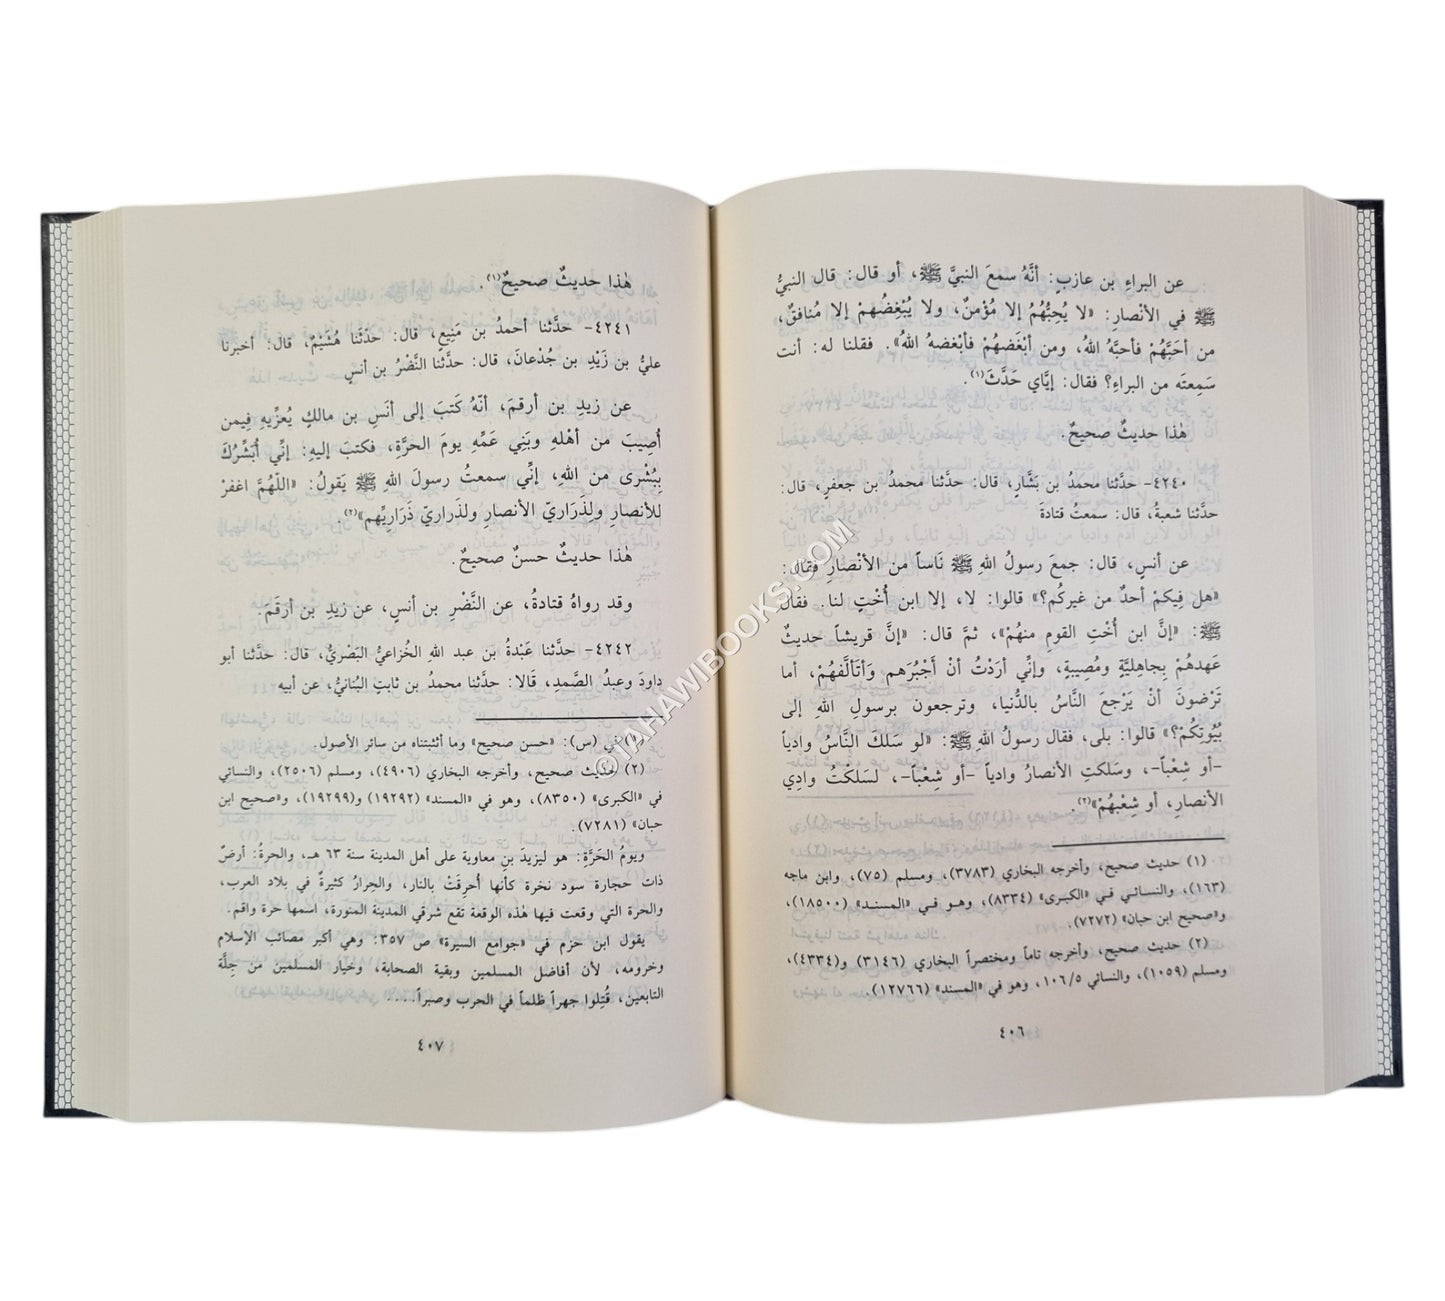 عن البراءِ بن عازبٍ: أنَّهُ سمعَ النبيَّ ﷺ، أو قال: قال النبيُّ
ﷺ في الأنْصارِ: «لا يُحِبُّهُمْ إلا مُؤْمنٌ، ولا يُبْغِضُهمْ إلا مُنافقٌ،
من أحَبَّهُمْ فأحبَّهُ اللهُ، ومن أبْغَضهُمْ فأبْغضهُ اللهُ». فقلنا له: أنت
سَمِعتَه من البراءِ؟ فقال: إيَّاي حَدَّثَ(١).
هٰذا حديثٌ صحيحٌ.
٤٢٤٠- حدَّثنا محمدُ بن بَشَّارٍ، قال: حدَّثنا محمدُ بن جعفرٍ، قال:
حدَّثنا شعبةُ، قال: سمعتُ قتادةَ
عن أنسٍ، قال: جمعَ رسولُ اللهِ ﷺ نَاساً من الأنْصارِ فقال:
«هل فِيكمْ أحدٌ من غيركُم؟» قالوا: لا، إلا ابن أُخْتٍ لنا. فقال
ﷺ: «إنَّ ابن أُخْتِ القومِ منهُمْ»، ثمَّ قال: «إنَّ قريشاً حديثٌ
عَهدهُمْ بِجاهليَّةٍ ومُصِيبةٍ، وإنِّي أرَدْتُ أنْ أَجْبُرَهم وأتَألَّفهُمْ، أما
تَرْضونَ أنْ يَرْجعَ النَّاسُ بالدُّنيا، وترجعون برسولِ اللهِ إلى
بُيُوتكُمْ؟» قالوا: بلى، فقال رسولُ اللهِ ﷺ: «لو سَلكَ النَّاسُ وادياً
-أو شِعْباً-، وسَلكتِ الأنصارُ وادياً -أو شِعْباً-، لسَلكْتُ وادِي
الأنصارِ، أو شِعْبهُمْ»(٢).
(١) حديث صحيح، وأخرجه البخاري (٣٧٨٣)، ومسلم (٧٥)، وابن ماجه
(١٦٣)، والنسائي في «الكبرى» (٨٣٣٤)، وهو في «المسند» (١٨٥٠٠)،
و«صحيح ابن حبان» (٧٢٧٢).
(٢) حديث صحيح، وأخرجه تاماً ومختصراً البخاري (٣١٤٦) و(٤٣٣٤)،
ومسلم (١٠٥٩)، والنسائي ١٠٦/٥، وهو في «المسند» (١٢٧٦٦).
٤٠٦
هٰذا حديثٌ صحيحٌ(١).
٤٢٤١- حدَّثنا أحمدُ بن مَنِيعٍ، قال: حدَّثنا هُشَيْمٌ، قال: أخبرنا
عليُّ بن زَيْدِ بن جُدْعانَ، قال: حدَّثنا النَّضْرُ بن أنسٍ
عن زيدِ بن أرقمَ، أنَّهُ كَتبَ إلى أنَسِ بن مالكٍ يُعزِّيهِ فِيمن
أُصِيبَ من أهْلهِ وبَنِي عَمِّهِ يومَ الحرَّةِ، فكتبَ إليهِ: إنِّي أُبَشِّرُكَ
بِبُشْرى من اللهِ، إنِّي سمعتُ رسولَ اللهِ ﷺ يَقولُ: «اللّهُمَّ اغفرْ
للأنصارِ ولِذَرَاريّ الأنصارِ ولذَراريّ ذَرَارِيِّهم»(٢).
هٰذا حديثٌ حسنٌ صحيحٌ.
وقد رواهُ قتادةُ، عن النَّضْرِ بن أنسٍ، عن زيدِ بن أرْقَمَ.
٤٢٤٢- حدَّثنا عَبْدةُ بن عبد اللهِ الخُزاعيُّ البَصْريُّ، قال: حدَّثنا أبو
داودَ وعبدُ الصَّمدِ، قَالا: حدَّثنا محمدُ بن ثابتٍ البُنانيُّ، عن أبيه
(١) في (س): «حسن صحيح» وما أثبتناه من سائر الأصول.
(٢) حديث صحيح، وأخرجه البخاري (٤٩٠٦)، ومسلم (٢٥٠٦)، والنسائي
في «الكبرى» (٨٣٥٠)، وهو في «المسند» (١٩٢٩٢) و(١٩٢٩٩)، و«صحيح ابن
حبان» (٧٢٨١).
ويومُ الحَرَّةِ: هو ليزيدَ بنِ معاوية على أهل المدينة سنة ٦٣ هـ، والحرةُ: أرضٌ
ذات حجارة سود نخرة كأنها أُحرِقَتْ بالنار، والحِرارُ كثيرةٌ في بلاد العرب،
والحرة التي وقعت فيها هٰذه الوقعة تقع شرقي المدينة المنورة، اسمها حرة واقم.
يقول ابن حزم في «جوامع السيرة» ص ٣٥٧: وهي أكبر مصائب الإسلام
وخرومه، لأن أفاضل المسلمين وبقية الصحابة، وخيار المسلمين من جِلَّة
التابعين، قُتِلوا جهراً ظلماً في الحرب وصبراً.....
٤٠٧
©TAHAWIBOOKS.COM